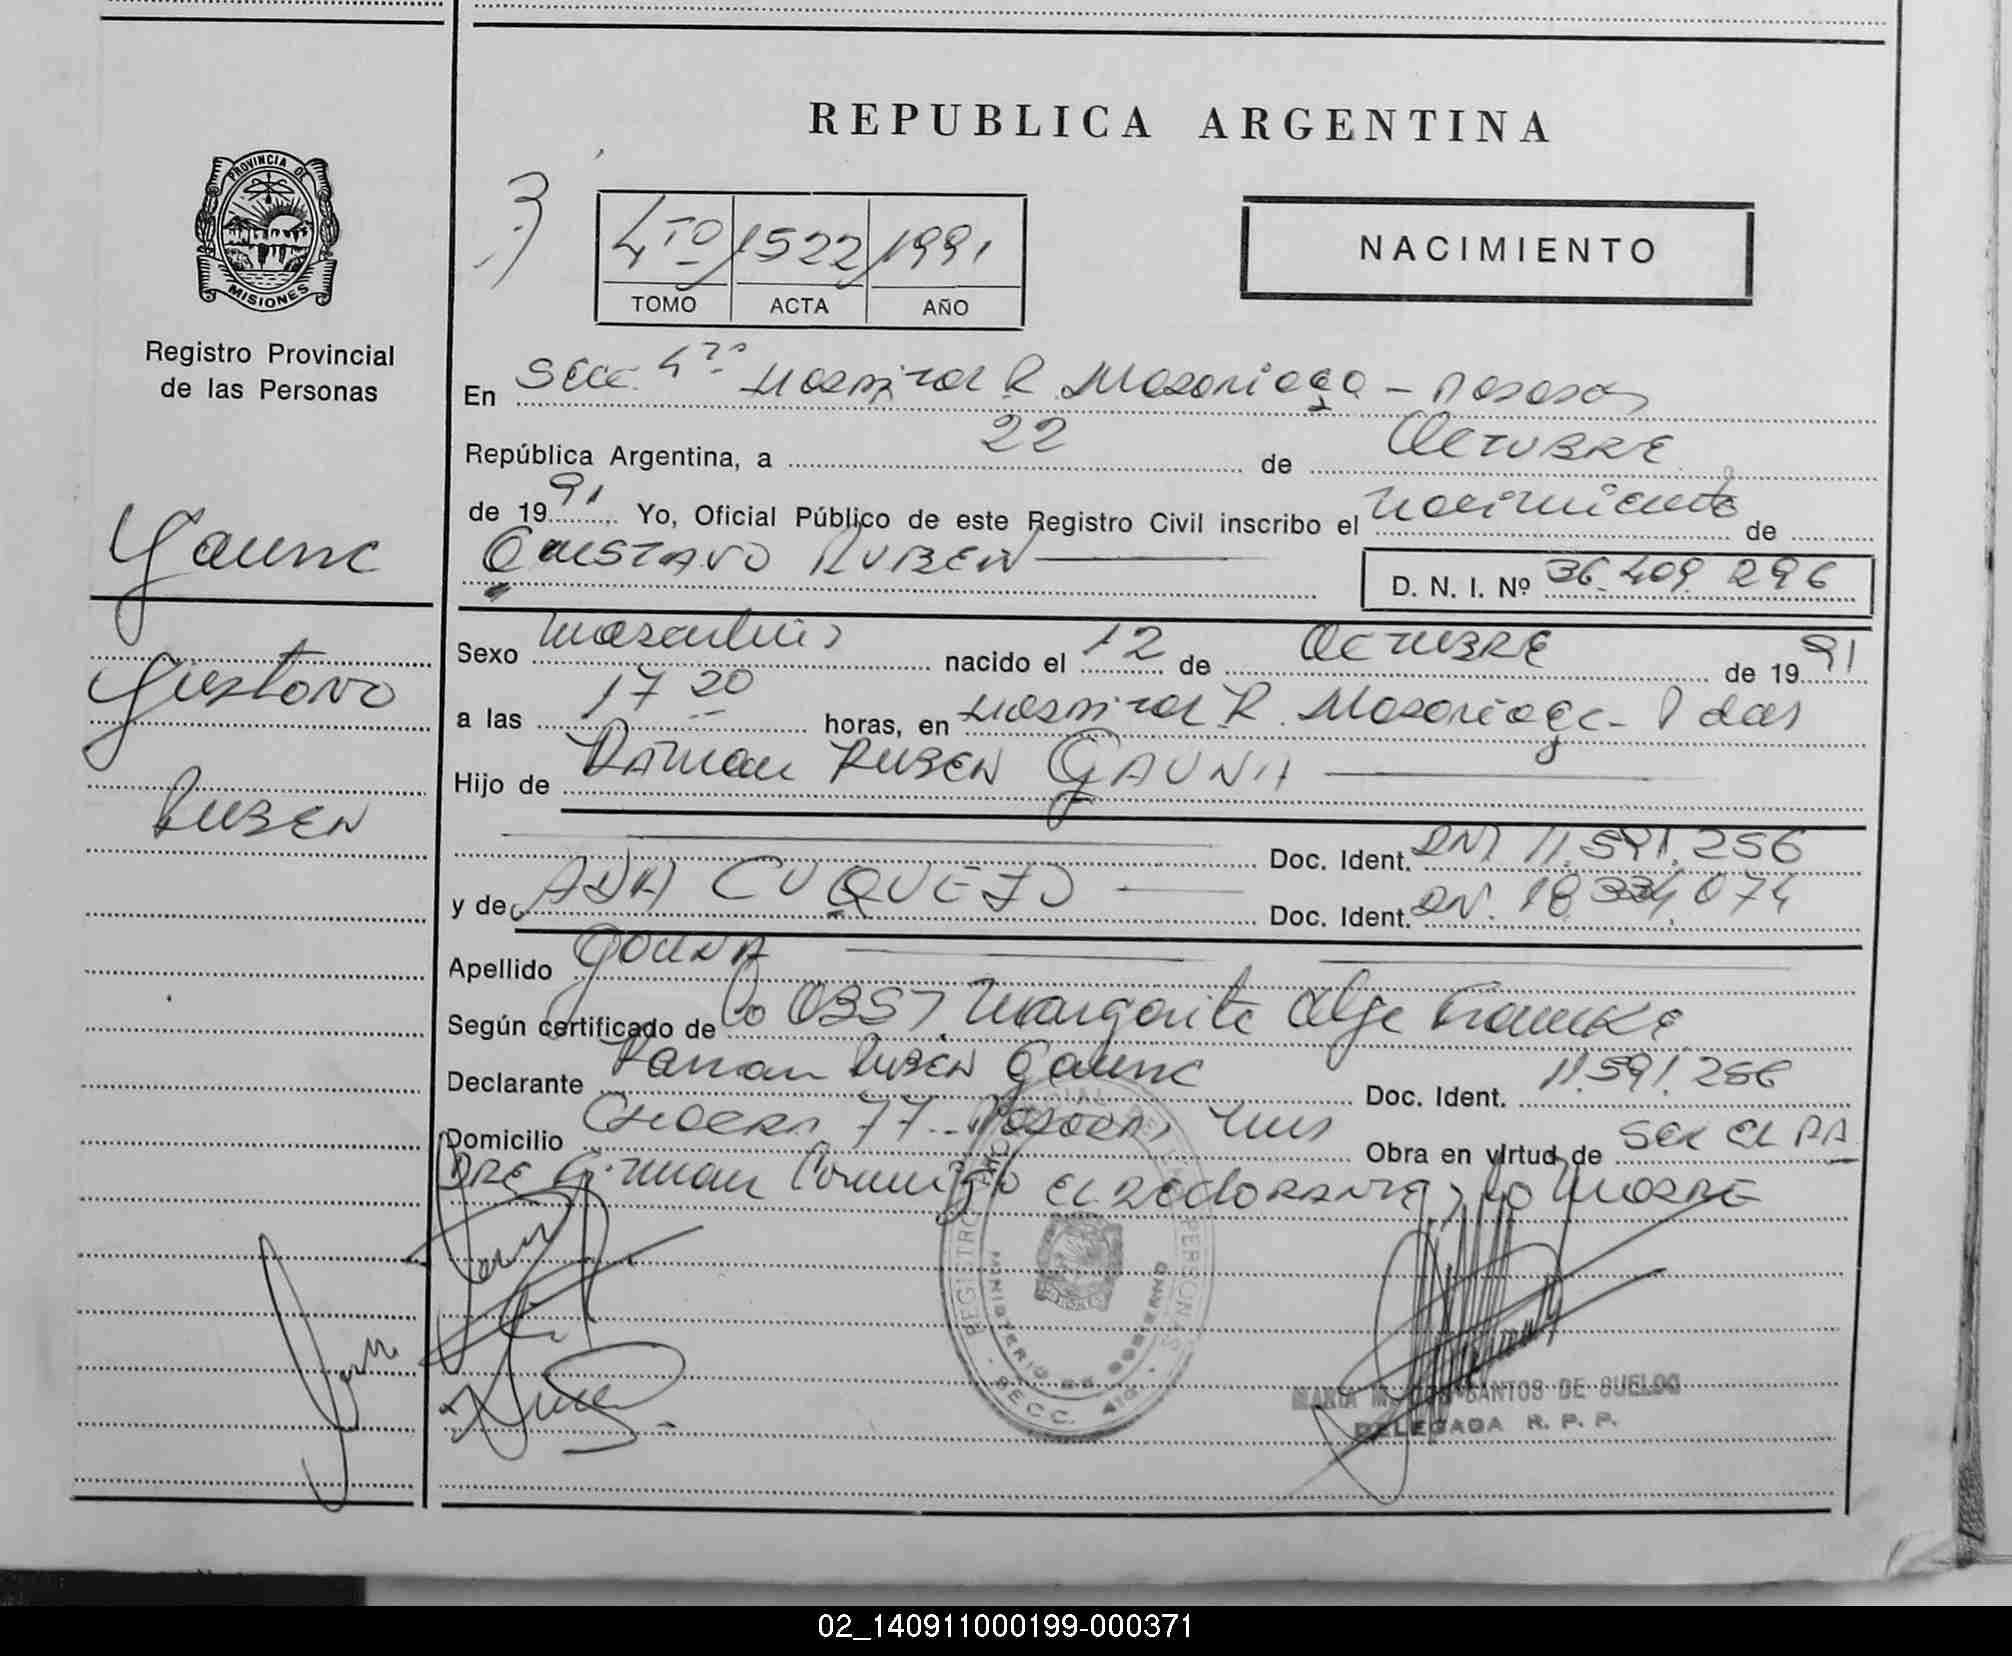 REPUBLICA ARGENTINA
PROVINCIA DE
MISIONES
Registro Provincial
de las Personas
4TO 1522 1991
TOMO ACTA AÑO
NACIMIENTO
En Secc. 4ta Hospital R. Madariaga - Posadas
República Argentina, a 22 de OCTUBRE
de 1991 Yo, Oficial Público de este Registro Civil inscribo el nacimiento de
GUSTAVO RUBEN
D. N. I. Nº 36.409.296
Gauna
Gustavo
RUBEN
Sexo masculino nacido el 12 de OCTUBRE de 1991
a las 17 20 horas, en Hospital R. Madariaga - Pdas
Hijo de RAMON RUBEN GAUNA
Doc. Ident. DNI 11.591.256
y de ADA CUQUEJO Doc. Ident. DN. 18.334.074
Apellido GAUNA
Según certificado de lo OBST. Margarita Olga
Declarante Ramon RUBEN Gauna Doc. Ident. 11.591.256
Domicilio 77 - POSADAS Obra en virtud de SER EL PA
DRE Firman Conmigo EL DECLARANTE y la MADRE
REGISTRO PROVINCIAL DE LAS PERSONAS
MINISTERIO DE GOBIERNO
SECC. 4ta.
MARIA M. DOS SANTOS DE SUELDO
DELEGADA R. P. P.
02_140911000199-000371